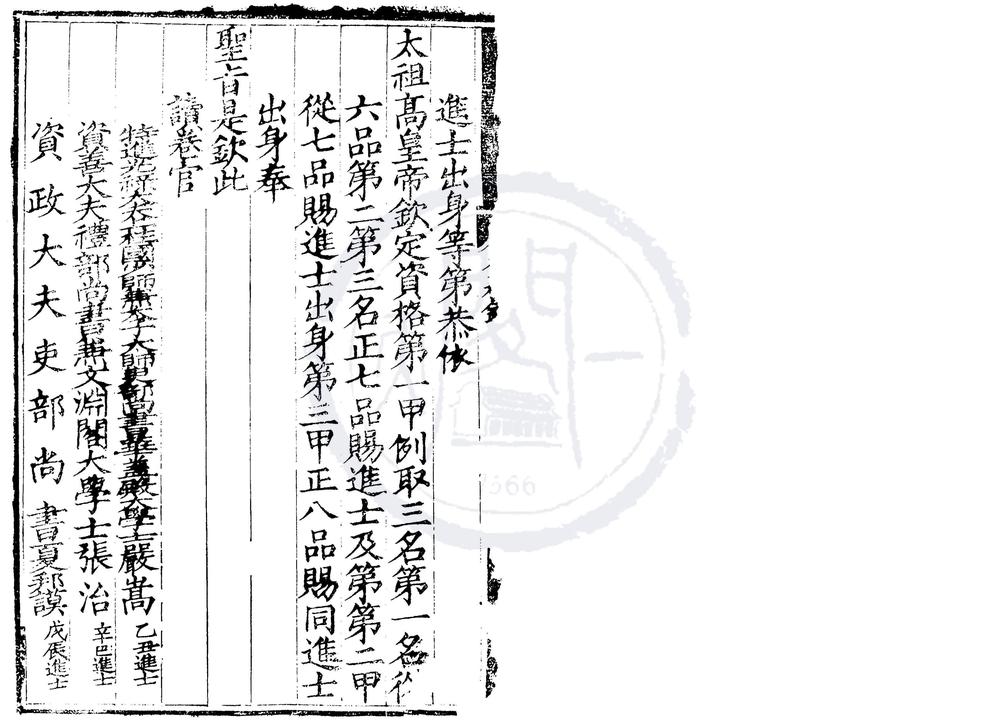 進士出身等第恭依
太祖高皇帝欽定資格第一甲例取三名第一名從
六品第二第三名正七品賜進士及第第二甲
從七品賜進士出身第三甲正八品賜同進士
出身奉
聖旨是欽此
讀卷官
特進光祿大夫柱國少師兼太子太師吏部尚書華蓋殿大學士嚴嵩 乙丑進士
資善大夫禮部尚書兼文淵閣大學士張治 辛巳進士
資政大夫吏部尚書夏邦謨 戊辰進士